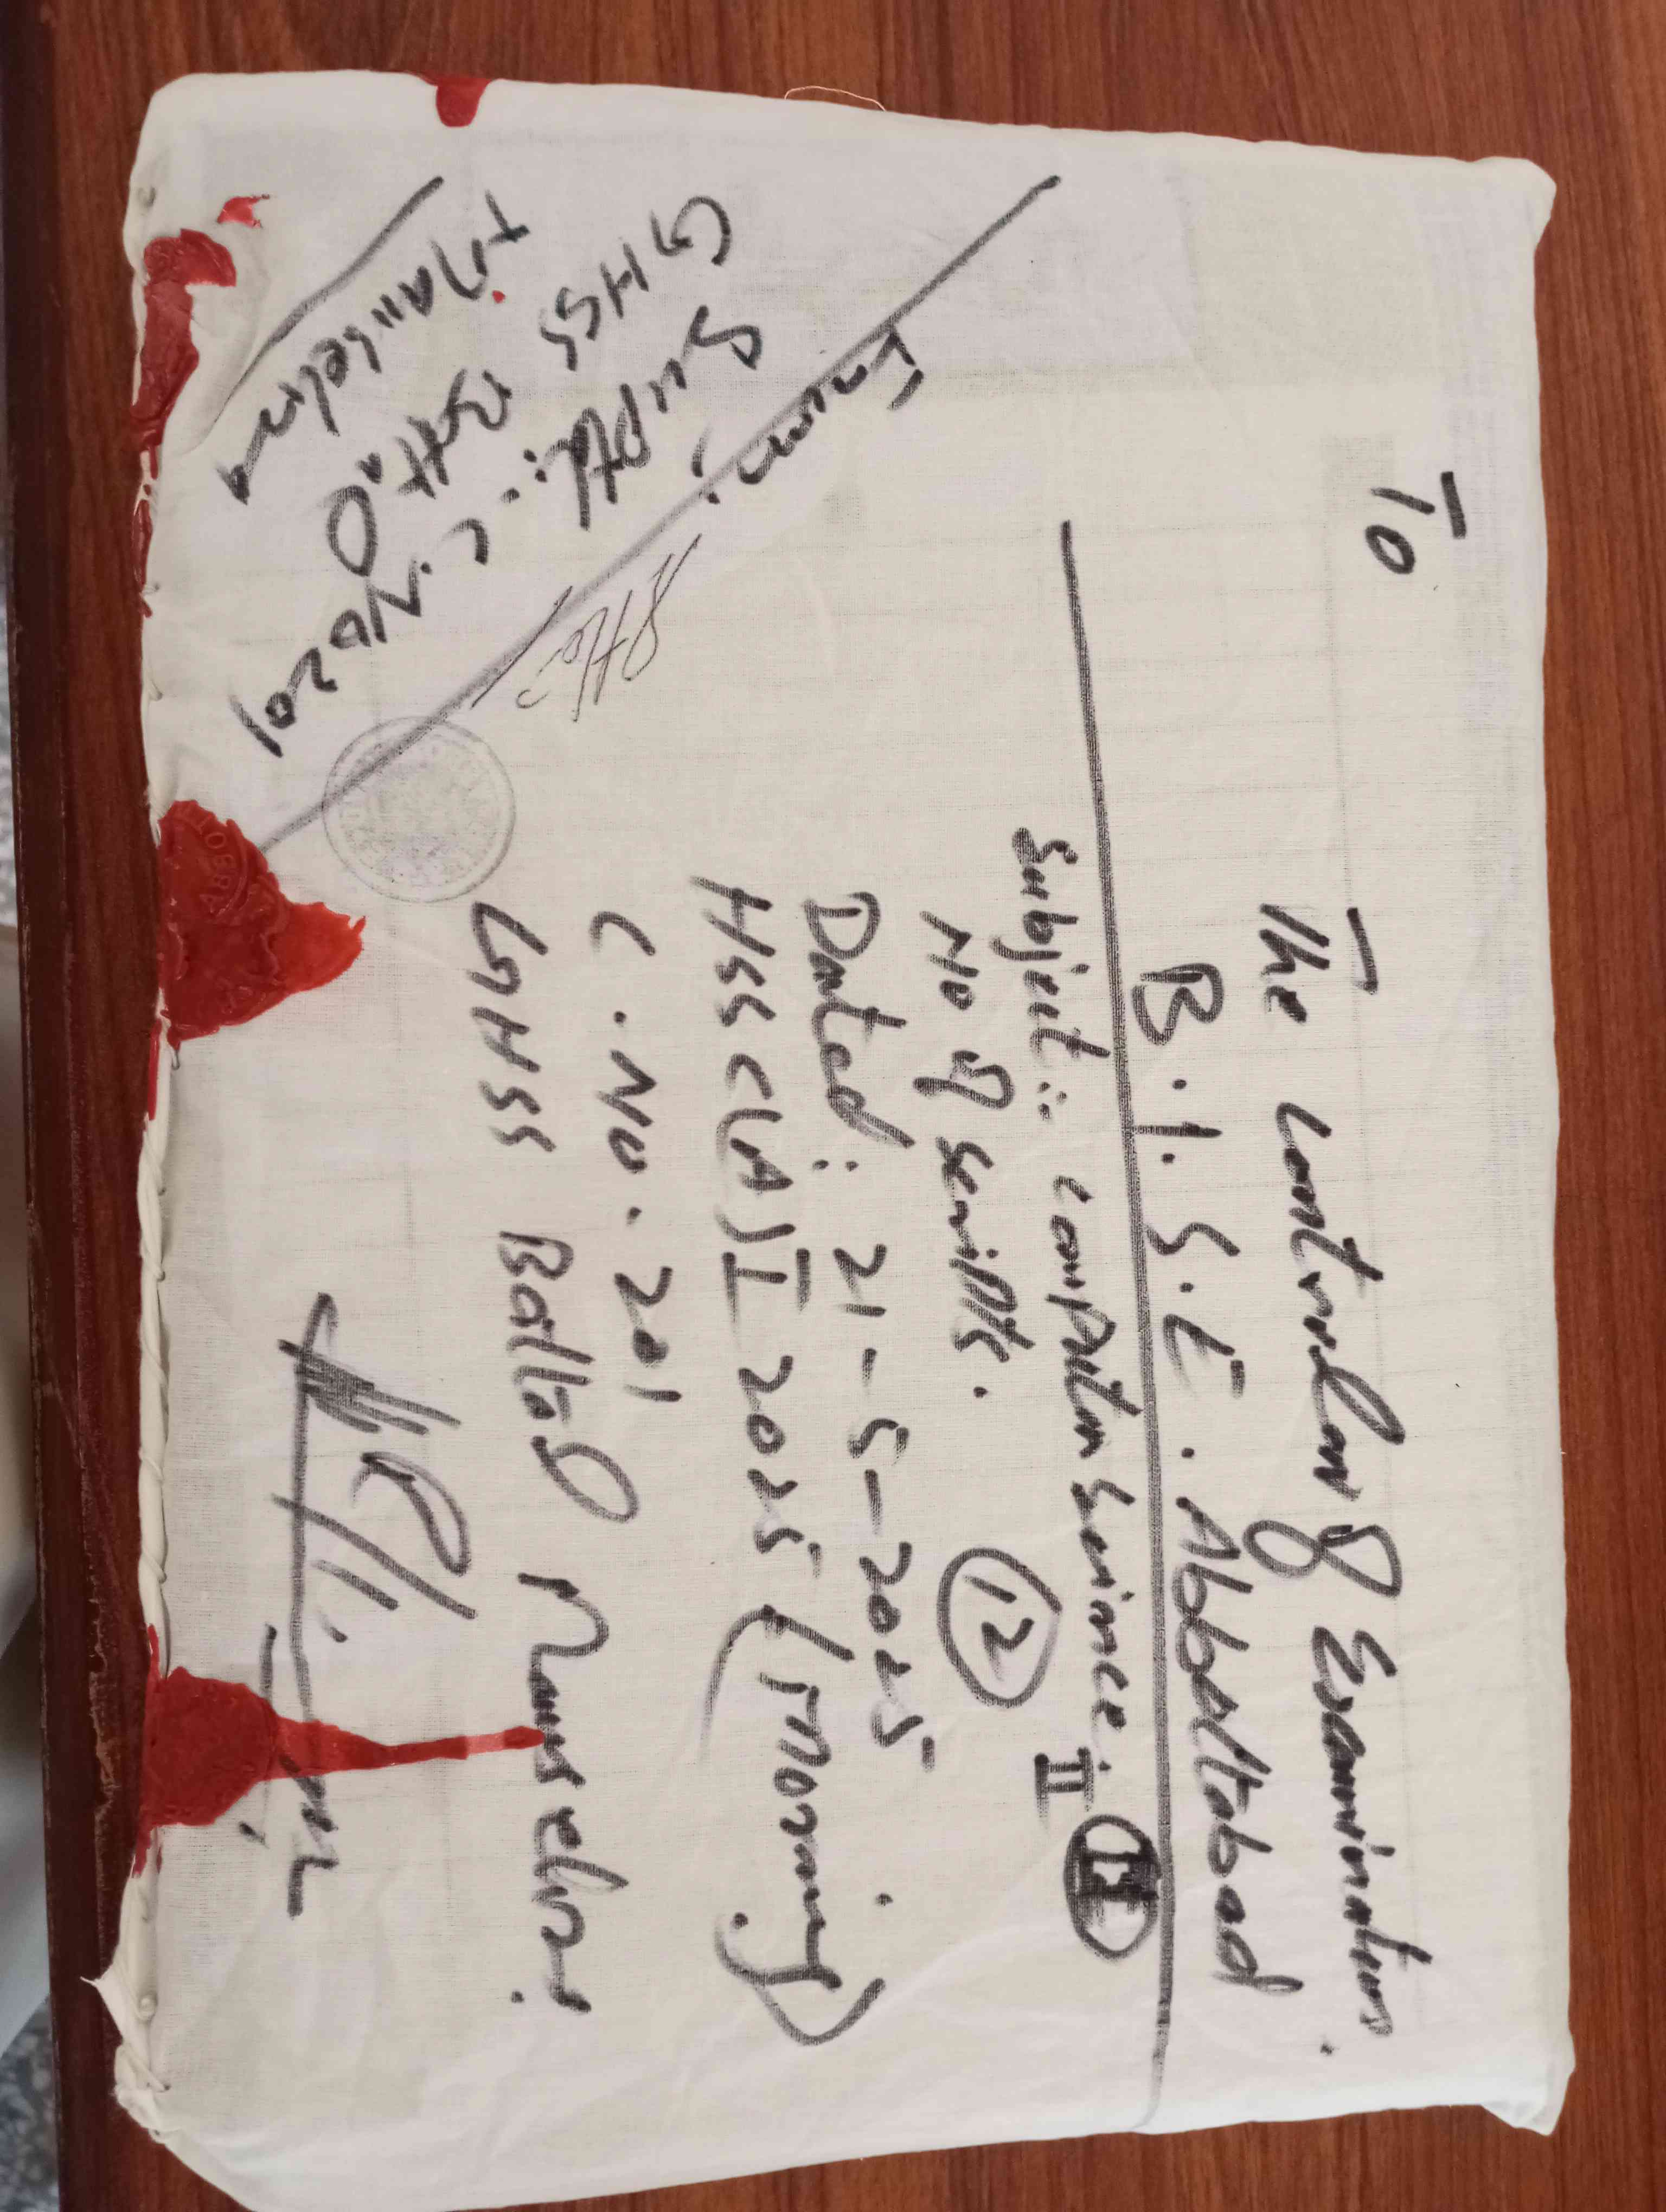 To
The Controlar of Examinations.
B.I.S.E. Abbottabad
Subject:: Computer Science. II
No of Scripts. 12
Dated: 21-5-2025
HSSC(A)I 2025 (Morning)
C.No. 201
GHSS Battal Mansehra
From:
Supdt:
GHSS C.No 201
Battal
Mansehra